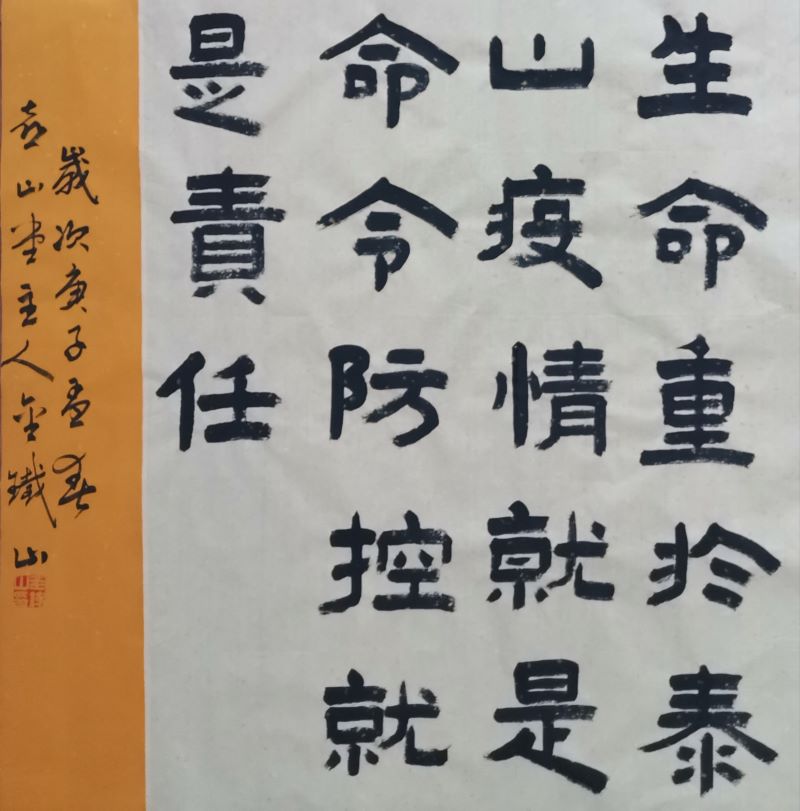 生命重於泰
山疫情就是
命令防控就
是責任
歲次庚子孟春
壺山堂主人金鐵山